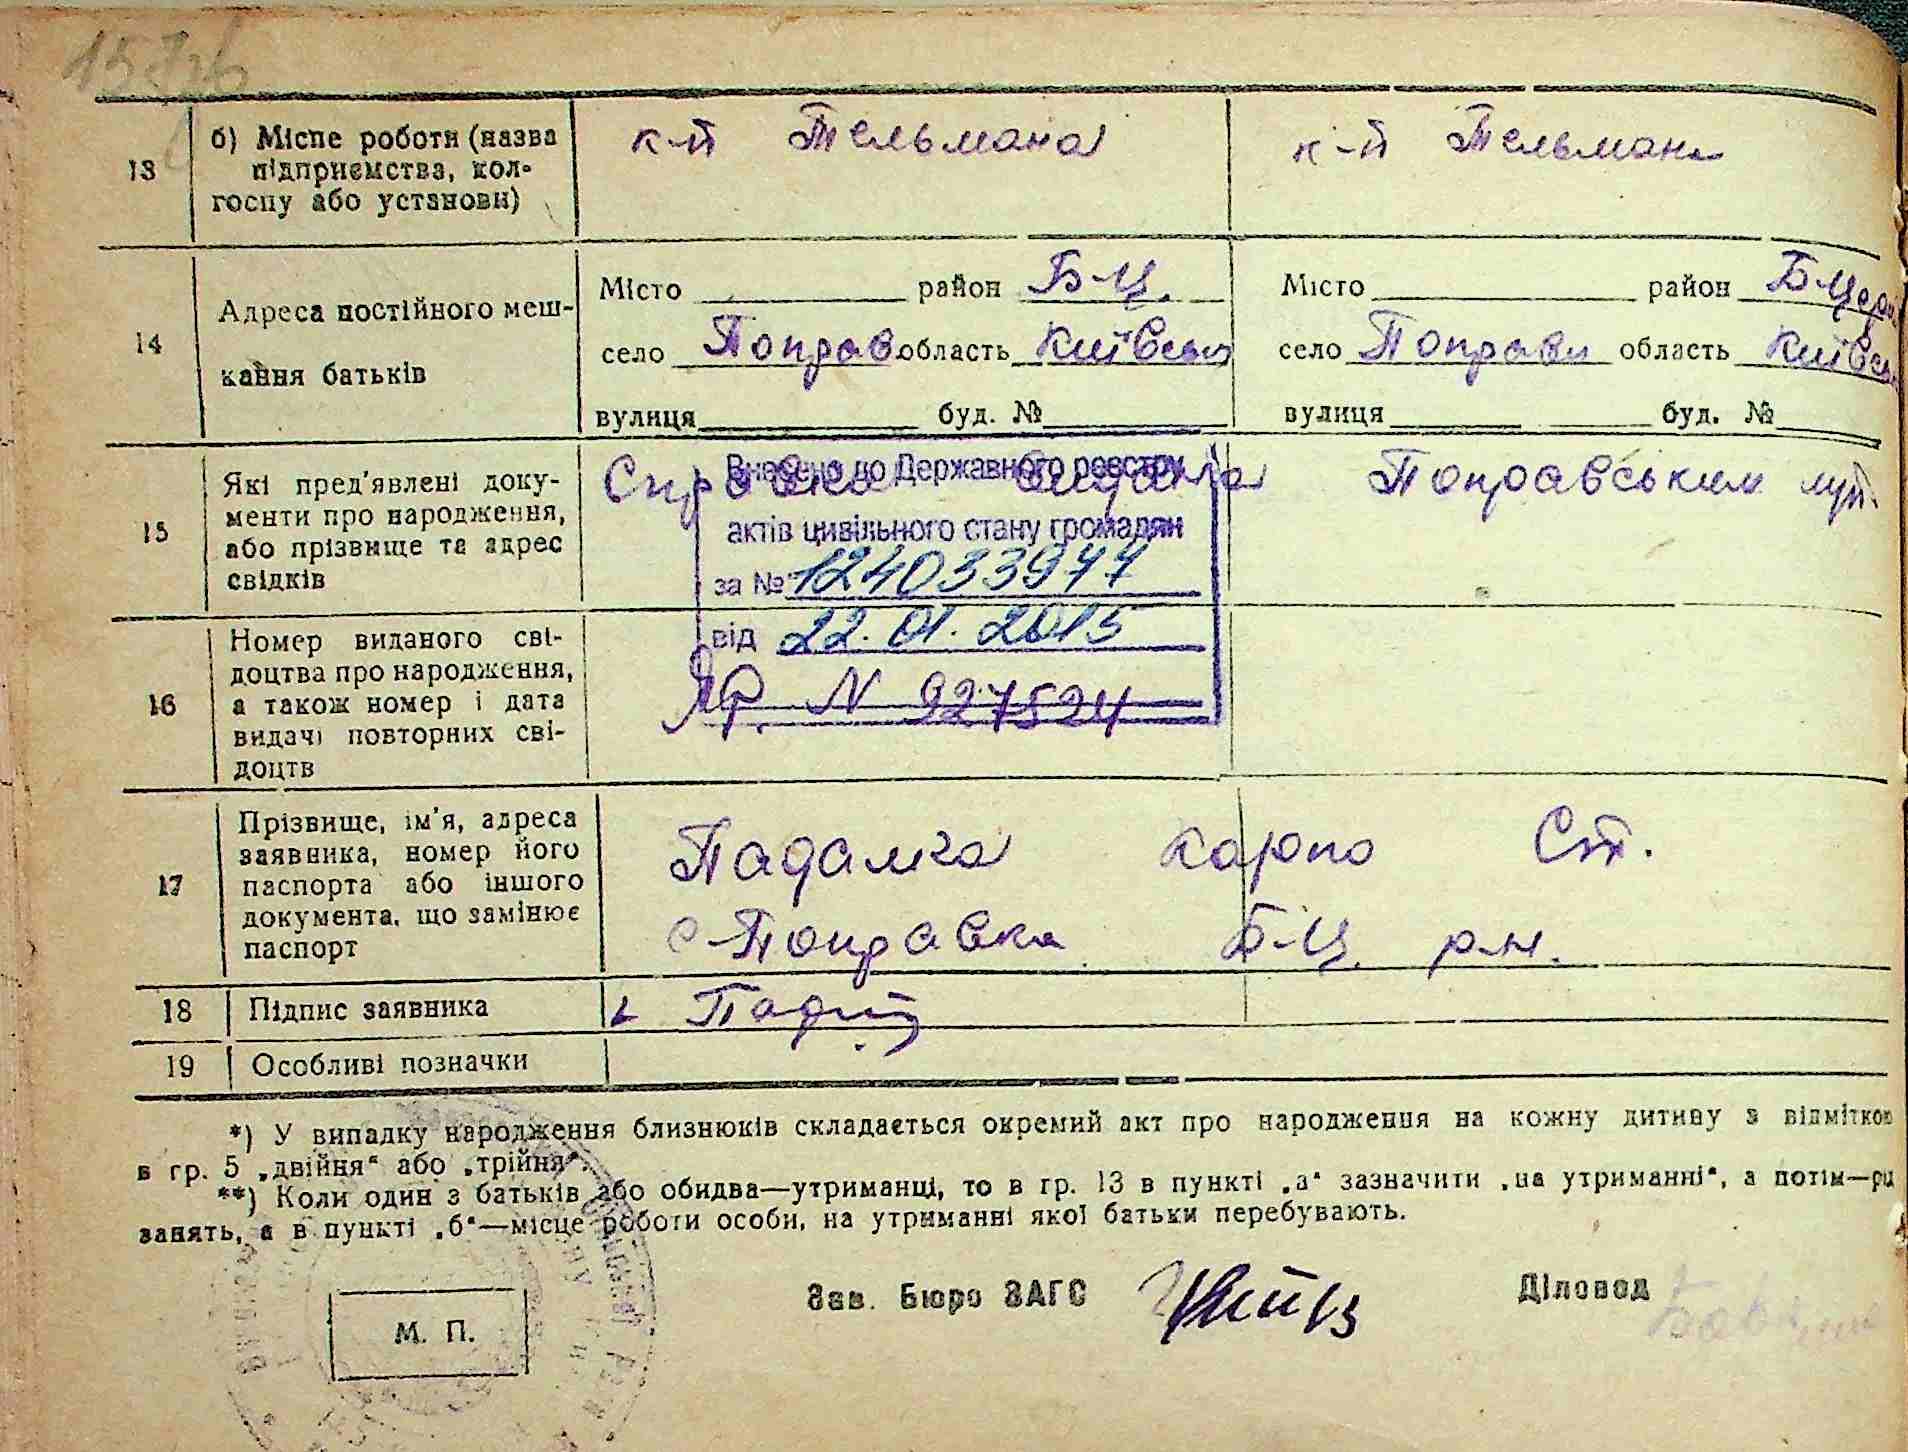 13
б) Місце роботи (назва
підприємства, кол-
госпу або установи)
к-п Тельмана
к-п Тельмана
14
Адреса постійного меш-
кання батьків
Місто район Б-Ц.
село Поправ. область Київськ
вулиця буд. №
Місто район Б-Церк
село Поправки область Київськ
вулиця буд. №
15
Які пред'явлені доку-
менти про народження,
або прізвище та адрес
свідків
Справка видана Поправським
Внесено до Державного реєстру
актів цивільного стану громадян
за №
від 22.01.2015
16
Номер виданого сві-
доцтва про народження,
а також номер і дата
видачі повторних сві-
доцтв
ЯР. N 927524
17
Прізвище, ім'я, адреса
заявника, номер його
паспорта або іншого
документа, що замінює
паспорт
Падалка Карпо Ст.
с Поправка Б-Ц. р.н.
18
Підпис заявника
19
Особливі позначки
*) У випадку народження близнюків складається окремий акт про народження на кожну дитину з відміткою
в гр. 5 „двійня“ або „трійня“.
**) Коли один з батьків або обидва—утриманці, то в гр. 13 в пункті „а“ зазначити „на утриманні“, а потім—рід
занять, а в пункті „б“—місце роботи особи, на утриманні якої батьки перебувають.
Зав. Бюро ЗАГС
Діловод
М. П.